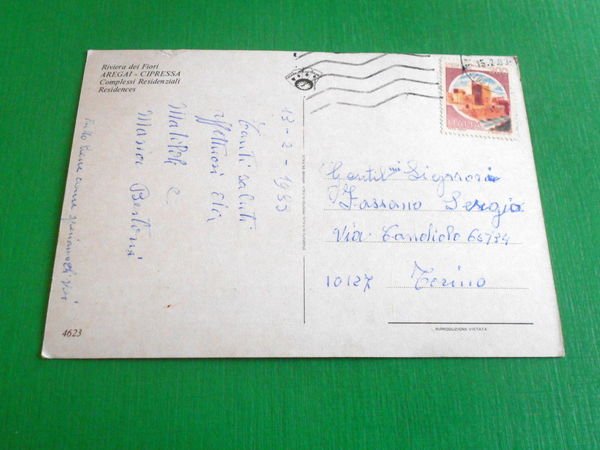 Riviera dei Fiori
AREGAI - CIPRESSA
Complessi Residenziali
Residences
13-2-1983
Tanti saluti
affettuosi da
e
Maria
Tutto bene come speriamo di voi
15.2.83
Gentil.mi Signori
Fassano Sergio
Via Candiolo
10127 Torino
4623
RIPRODUZIONE VIETATA